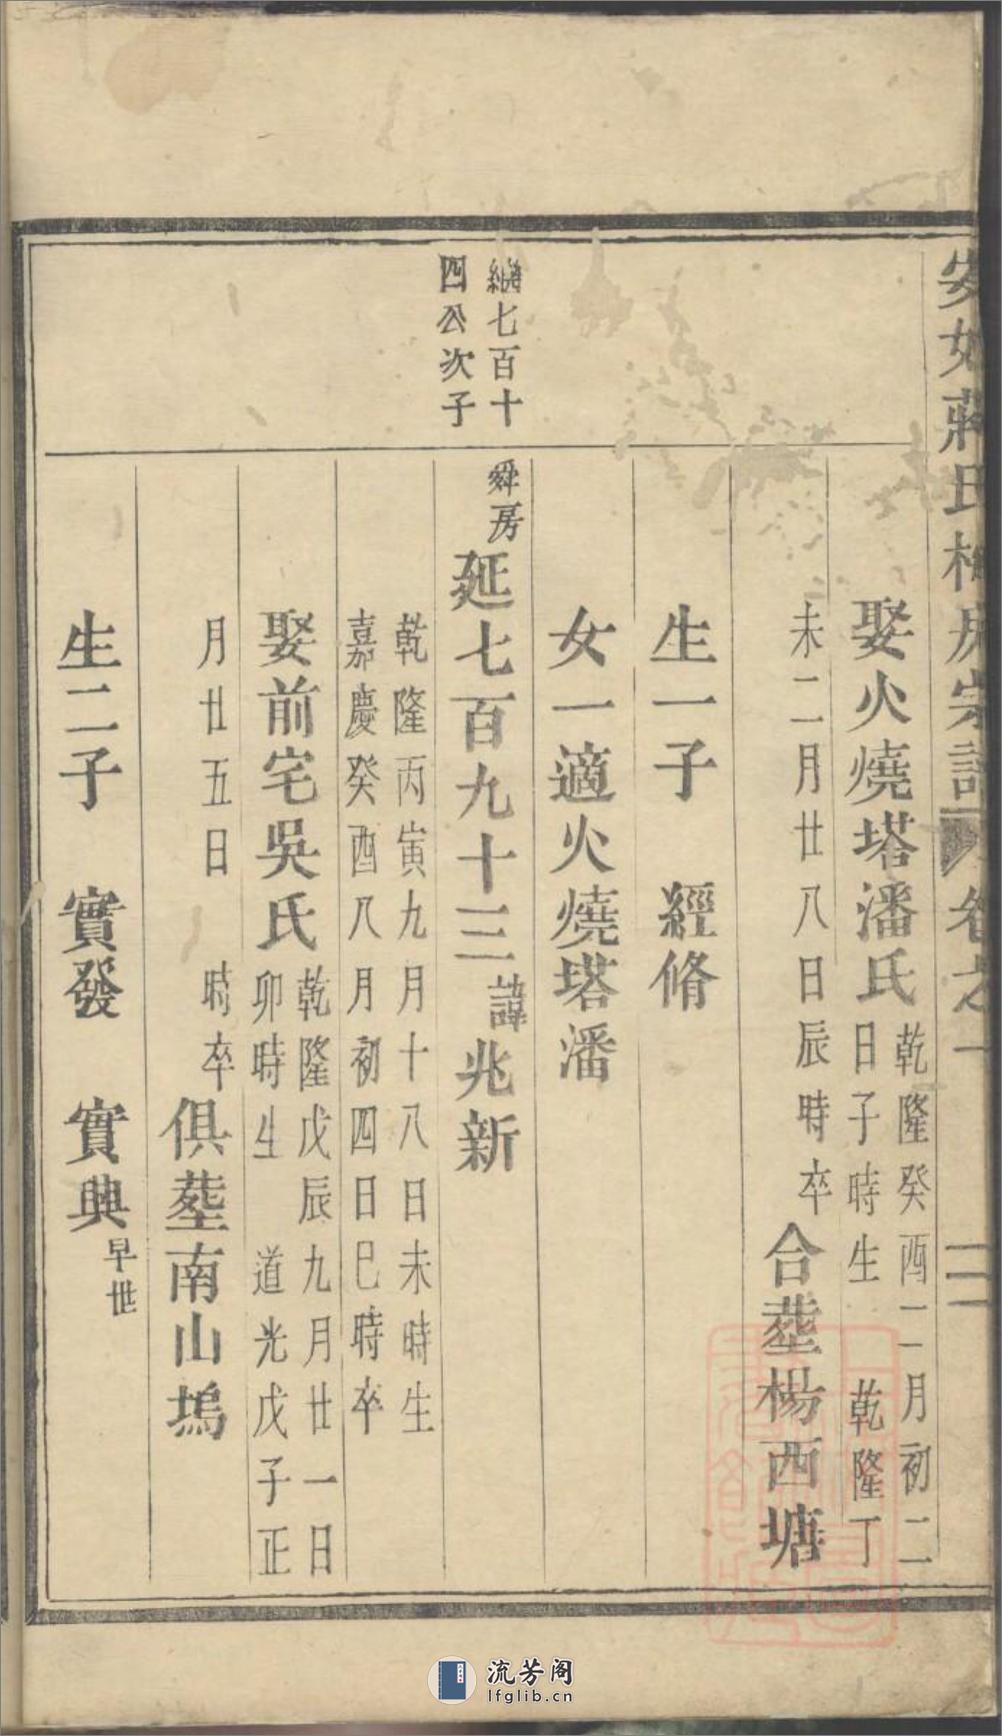 安如蔣氏柏房宗譜 卷之一 二
娶火燒塔潘氏
乾隆癸酉一二月初二
日子時生 乾隆丁
未二月廿八日辰時卒 合塟楊西塘
生一子 經脩
女一適火燒塔潘
七百十
四公次子
舜房延七百九十三諱兆新
乾隆丙寅九月十八日未時生
嘉慶癸酉八月初四日巳時卒
娶前宅吳氏
乾隆戊辰九月廿一日
卯時生 道光戊子正
月廿五日 時卒 俱塟南山塢
生二子 實發 實典早世
流芳阁
lfglib.cn